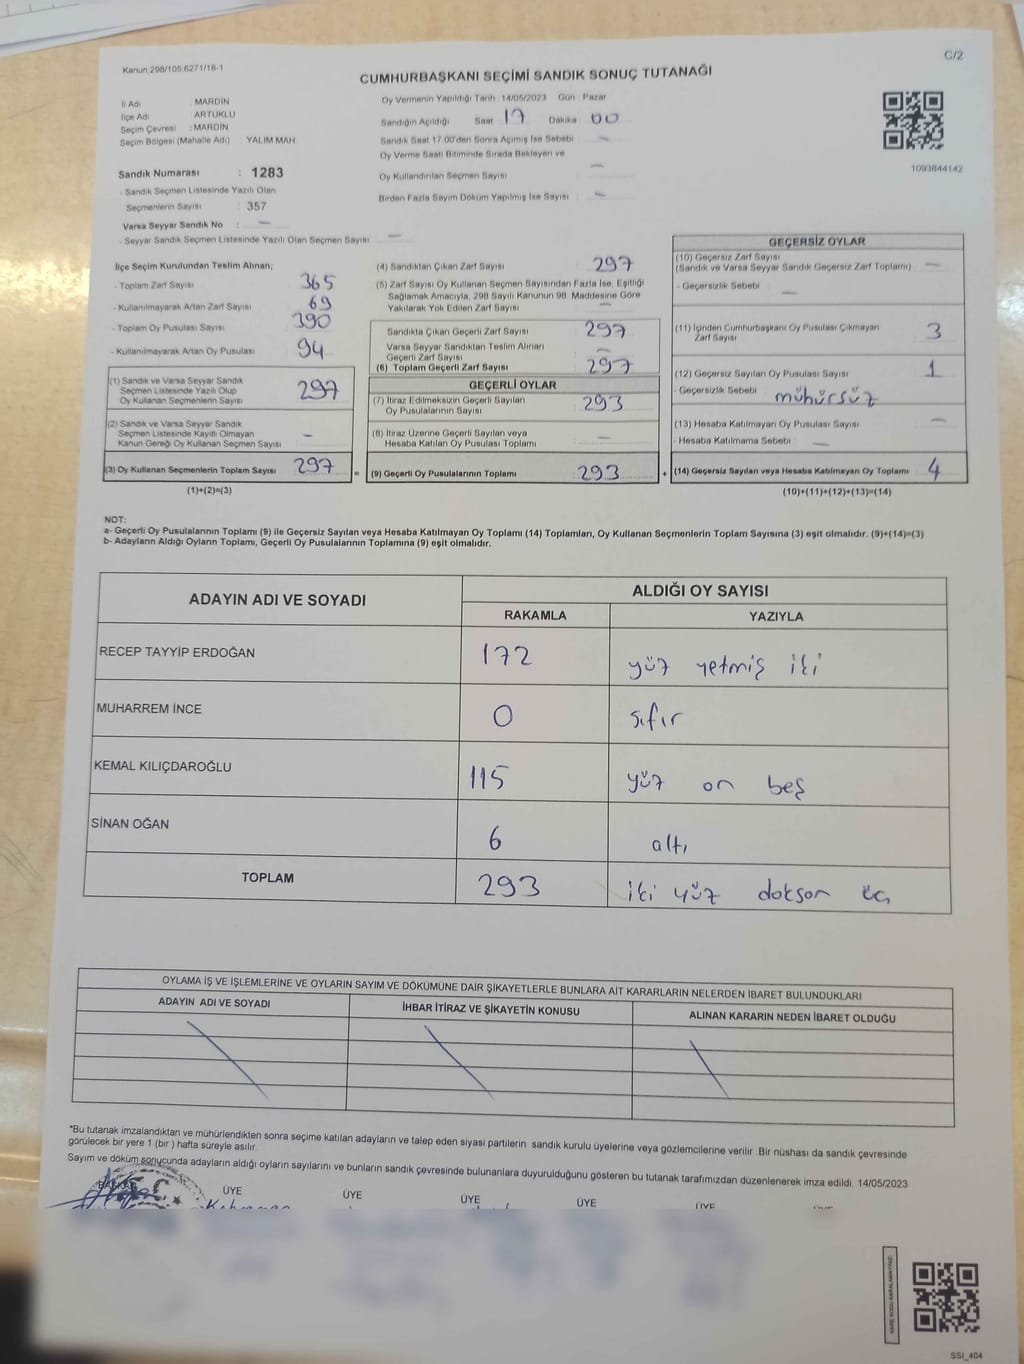 Kanun:298/105.6271/18-1
C/2
CUMHURBAŞKANI SEÇİMİ SANDIK SONUÇ TUTANAĞI
İl Adı : MARDİN
İlçe Adı : ARTUKLU
Seçim Çevresi : MARDİN
Seçim Bölgesi (Mahalle Adı) : YALIM MAH
Sandık Numarası : 1283
- Sandık Seçmen Listesinde Yazılı Olan
Seçmenlerin Sayısı : 357
Varsa Seyyar Sandık No : —
- Seyyar Sandık Seçmen Listesinde Yazılı Olan Seçmen Sayısı : —
Oy Vermenin Yapıldığı Tarih : 14/05/2023 Gün : Pazar
Sandığın Açıldığı Saat : 17 Dakika : 00
Sandık Saat 17.00'den Sonra Açımış İse Sebebi : —
Oy Verme Saati Bitiminde Sırada Bekleyen ve
Oy Kullandırılan Seçmen Sayısı : —
Birden Fazla Sayım Döküm Yapılmış İse Sayısı : —
1093644142
İlçe Seçim Kurulundan Teslim Alınan;
- Toplam Zarf Sayısı : 365
- Kullanılmayarak Artan Zarf Sayısı : 69
- Toplam Oy Pusulası Sayısı : 390
- Kullanılmayarak Artan Oy Pusulası : 94
(1) Sandık ve Varsa Seyyar Sandık
Seçmen Listesinde Yazılı Olup
Oy Kullanan Seçmenlerin Sayısı : 297
(2) Sandık ve Varsa Seyyar Sandık
Seçmen Listesinde Kayıtlı Olmayan
Kanun Gereği Oy Kullanan Seçmen Sayısı : —
(3) Oy Kullanan Seçmenlerin Toplam Sayısı : 297
(1)+(2)=(3)
(4) Sandıktan Çıkan Zarf Sayısı : 297
(5) Zarf Sayısı Oy Kullanan Seçmen Sayısından Fazla İse, Eşitliği
Sağlamak Amacıyla, 298 Sayılı Kanunun 98. Maddesine Göre
Yakılarak Yok Edilen Zarf Sayısı : —
Sandıkta Çıkan Geçerli Zarf Sayısı : 297
Varsa Seyyar Sandıktan Teslim Alınan
Geçerli Zarf Sayısı : —
(6) Toplam Geçerli Zarf Sayısı : 297
GEÇERLİ OYLAR
(7) İtiraz Edilmeksizin Geçerli Sayılan
Oy Pusulalarının Sayısı : 293
(8) İtiraz Üzerine Geçerli Sayılan veya
Hesaba Katılan Oy Pusulası Toplamı : —
= (9) Geçerli Oy Pusulalarının Toplamı : 293 +
GEÇERSİZ OYLAR
(10) Geçersiz Zarf Sayısı
(Sandık ve Varsa Seyyar Sandık Geçersiz Zarf Toplamı) : —
- Geçersizlik Sebebi : —
(11) İçinden Cumhurbaşkanı Oy Pusulası Çıkmayan
Zarf Sayısı : 3
(12) Geçersiz Sayılan Oy Pusulası Sayısı : 1
- Geçersizlik Sebebi : mühürsüz
(13) Hesaba Katılmayan Oy Pusulası Sayısı : —
- Hesaba Katılmama Sebebi : —
(14) Geçersiz Sayılan veya Hesaba Katılmayan Oy Toplamı : 4
(10)+(11)+(12)+(13)=(14)
NOT:
a- Geçerli Oy Pusulalarının Toplamı (9) ile Geçersiz Sayılan veya Hesaba Katılmayan Oy Toplamı (14) Toplamları, Oy Kullanan Seçmenlerin Toplam Sayısına (3) eşit olmalıdır. (9)+(14)=(3)
b- Adayların Aldığı Oyların Toplamı, Geçerli Oy Pusulalarının Toplamına (9) eşit olmalıdır.
ADAYIN ADI VE SOYADI ALDIĞI OY SAYISI
RAKAMLA YAZIYLA
RECEP TAYYİP ERDOĞAN 172 yüz yetmiş iki
MUHARREM İNCE 0 sıfır
KEMAL KILIÇDAROĞLU 115 yüz on beş
SİNAN OĞAN 6 altı
TOPLAM 293 iki yüz doksan üç
OYLAMA İŞ VE İŞLEMLERİNE VE OYLARIN SAYIM VE DÖKÜMÜNE DAİR ŞİKAYETLERLE BUNLARA AİT KARARLARIN NELERDEN İBARET BULUNDUKLARI
ADAYIN ADI VE SOYADI İHBAR İTİRAZ VE ŞİKAYETİN KONUSU ALINAN KARARIN NEDEN İBARET OLDUĞU
*Bu tutanak imzalandıktan ve mühürlendikten sonra seçime katılan adayların ve talep eden siyasi partilerin sandık kurulu üyelerine veya gözlemcilerine verilir. Bir nüshası da sandık çevresinde
görülecek bir yere 1 (bir ) hafta süreyle asılır.
Sayım ve döküm sonucunda adayların aldığı oyların sayılarını ve bunların sandık çevresinde bulunanlara duyurulduğunu gösteren bu tutanak tarafımızdan düzenlenerek imza edildi. 14/05/2023
BAŞKAN ÜYE ÜYE ÜYE ÜYE ÜYE
SSI_404